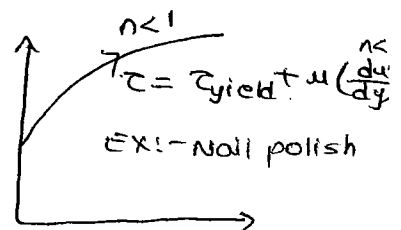 n<1
n<
τ = τyield + μ(du/dy
EX:- Nail polish